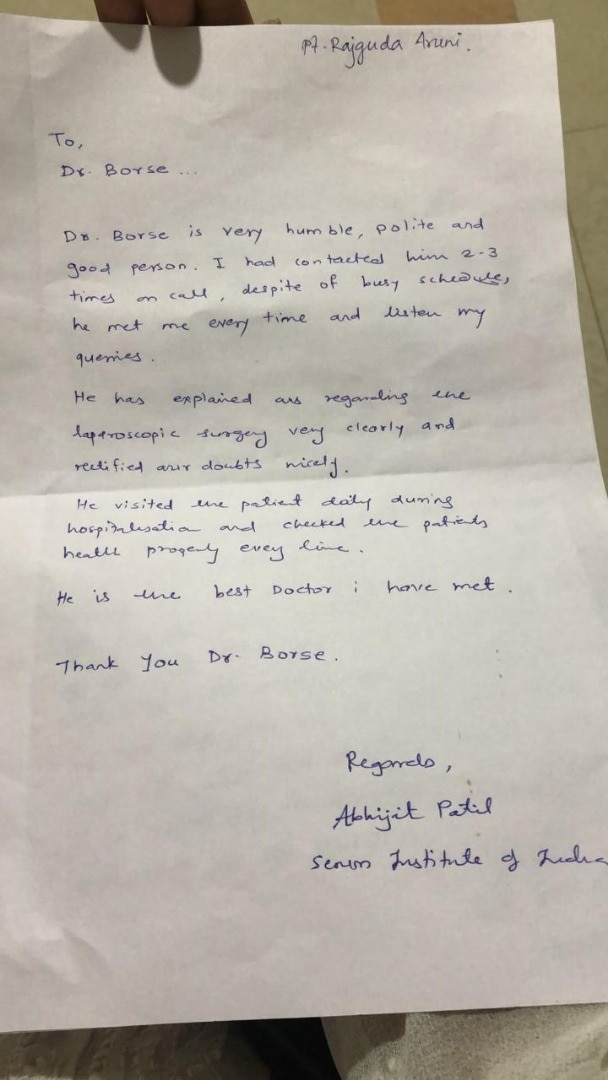 Pt. Rajguda Aruni.
To,
Dr. Borse ...
Dr. Borse is very humble, polite and
good person. I had contacted him 2-3
times on call, despite of busy schedule,
he met me every time and listen my
queries.
He has explained us regarding the
laparoscopic surgery very clearly and
rectified our doubts nicely.
He visited the patient daily during
hospitalisation and checked the patients
health properly every time.
He is the best Doctor i have met.
Thank You Dr. Borse.
Regards,
Abhijit Patil
Serum Institute of India